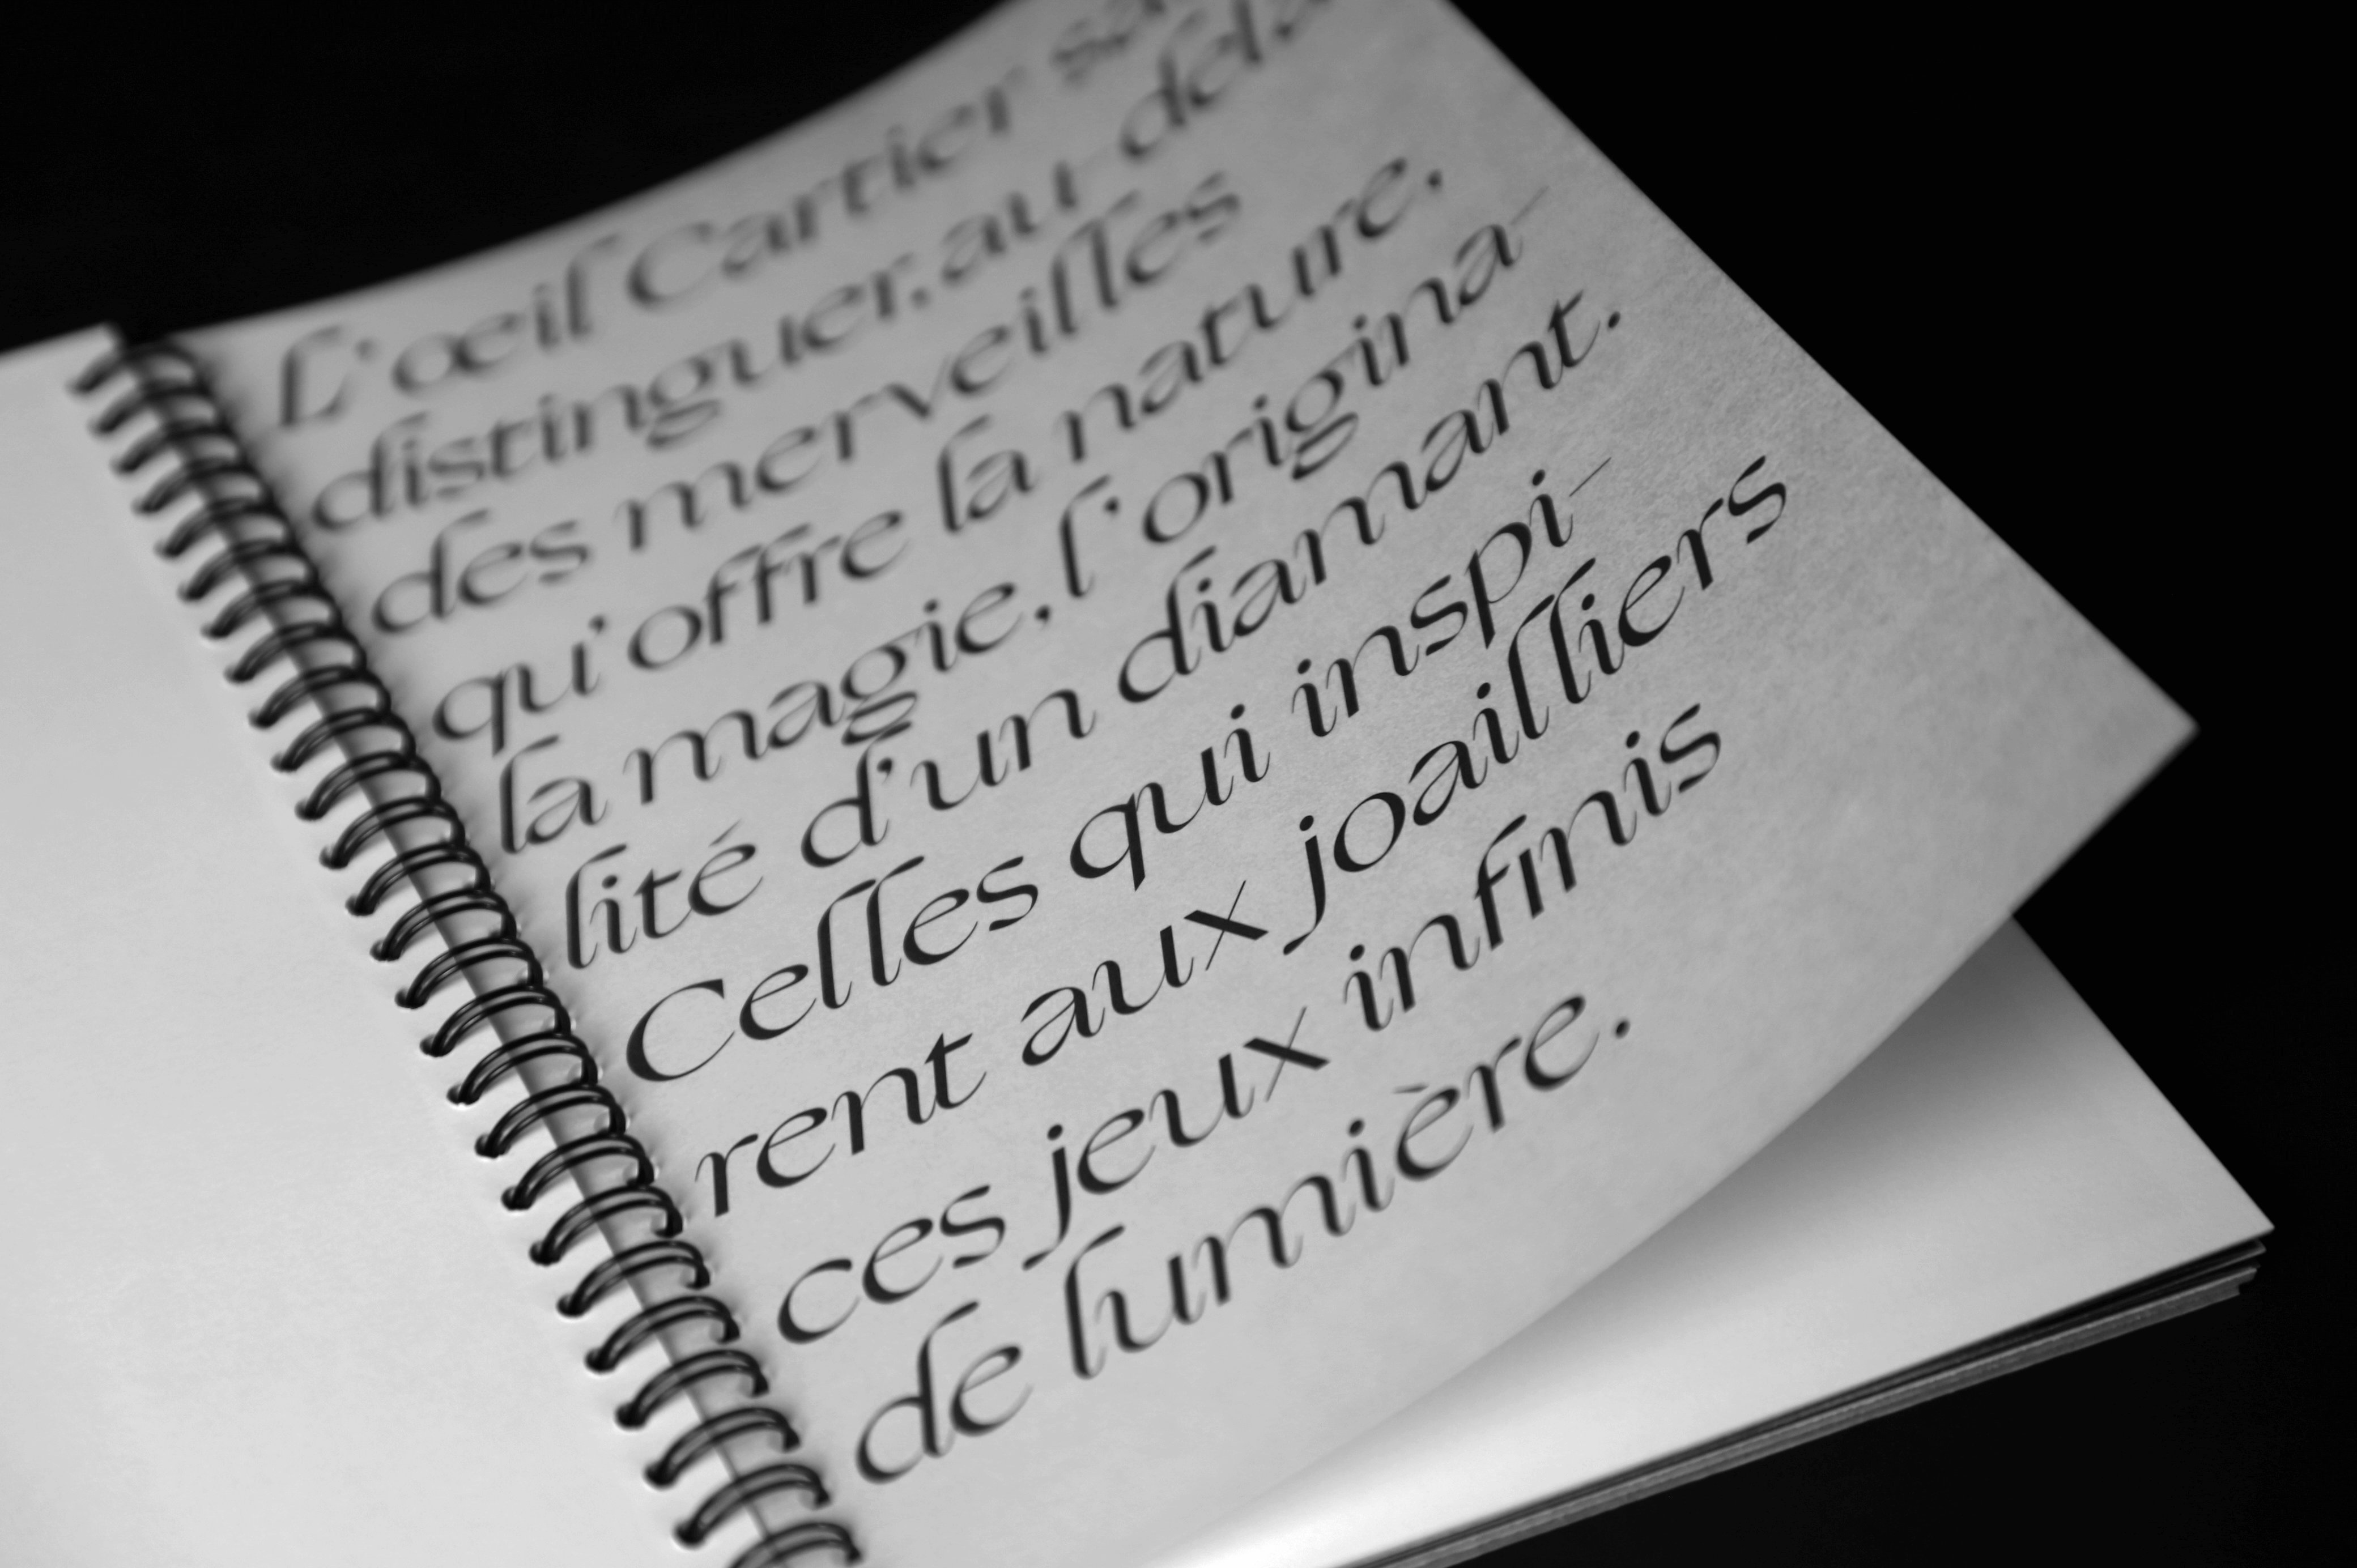 L'œil Cartier sa
distinguer, au-delà
des merveilles
qu'offre la nature,
la magie, l'origina-
lité d'un diamant.
Celles qui inspi-
rent aux joailliers
ces jeux infinis
de lumière.